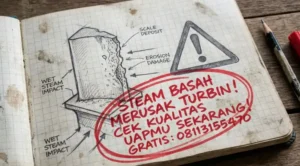 SCALE
DEPOSIT
EROSION
DAMAGE
WET
STEAM
IMPACT
WET
STEAM
IMPACT
STEAM BASAH
MERUSAK TURBIN!
CEK KUALITAS
UAPMU SEKARANG!
GRATIS: 08113155470